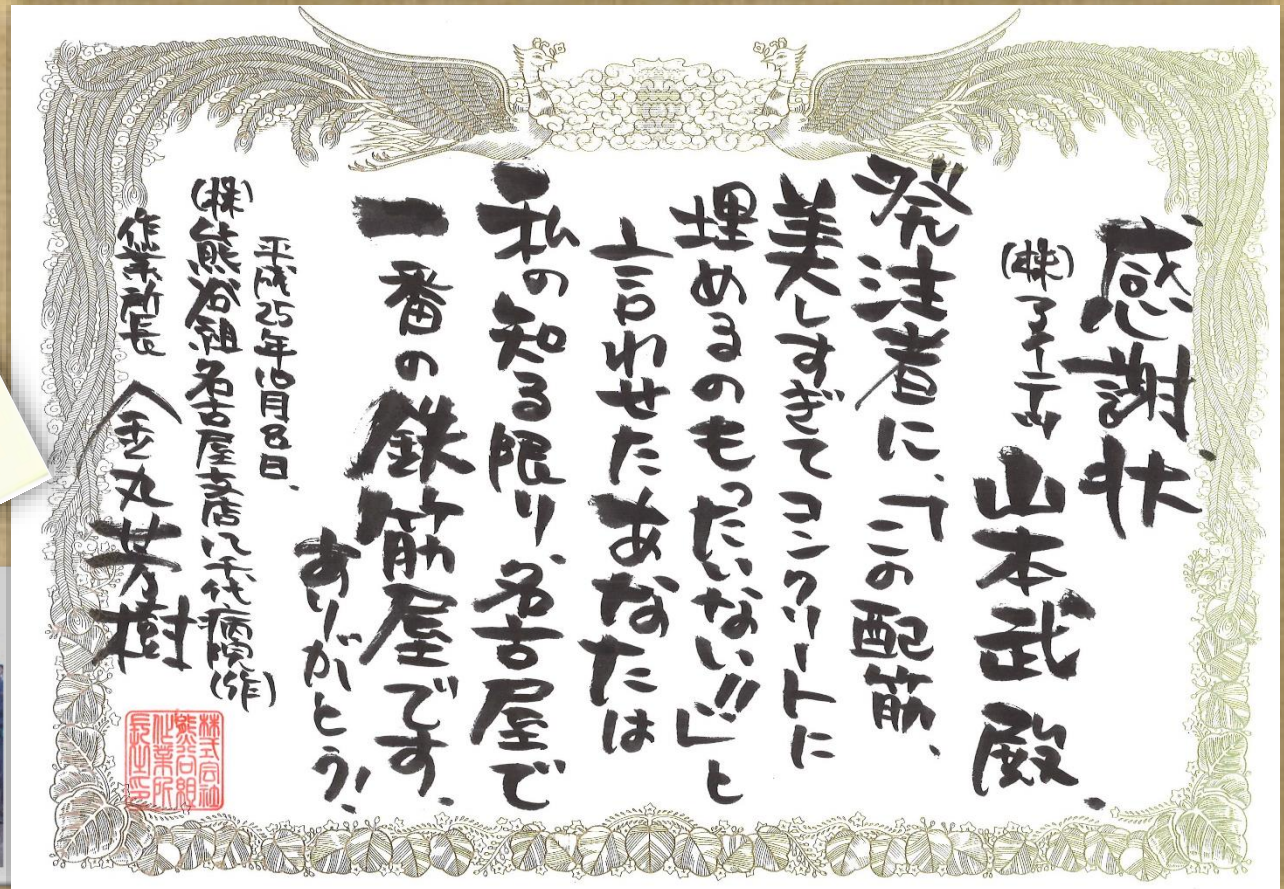 感謝状
(株)
山本武殿.
発注者に、「この配筋、
美しすぎてコンクリートに
埋めるのもったいない!!」と
言わせたあなたは
私の知る限り、名古屋で
一番の鉄筋屋です.
ありがとう!
平成25年10月8日.
(株)熊谷組名古屋支店八千代病院(作)
作業所長 金丸芳樹
株式会社
熊谷組
作業所
長之印